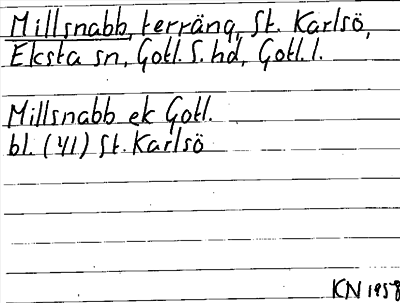 Millsnabb, terräng, St. Karlsö,
Eksta sn, Gotl. S. hd, Gotl. l.
Millsnabb ek Gotl.
bl. (41) St. Karlsö
KN 1958